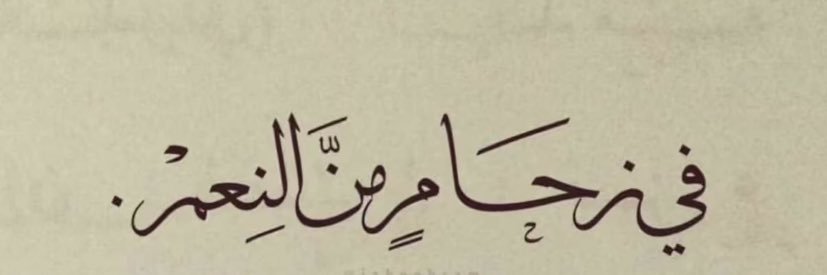 في زحامٍ منَّ النِعمْ.